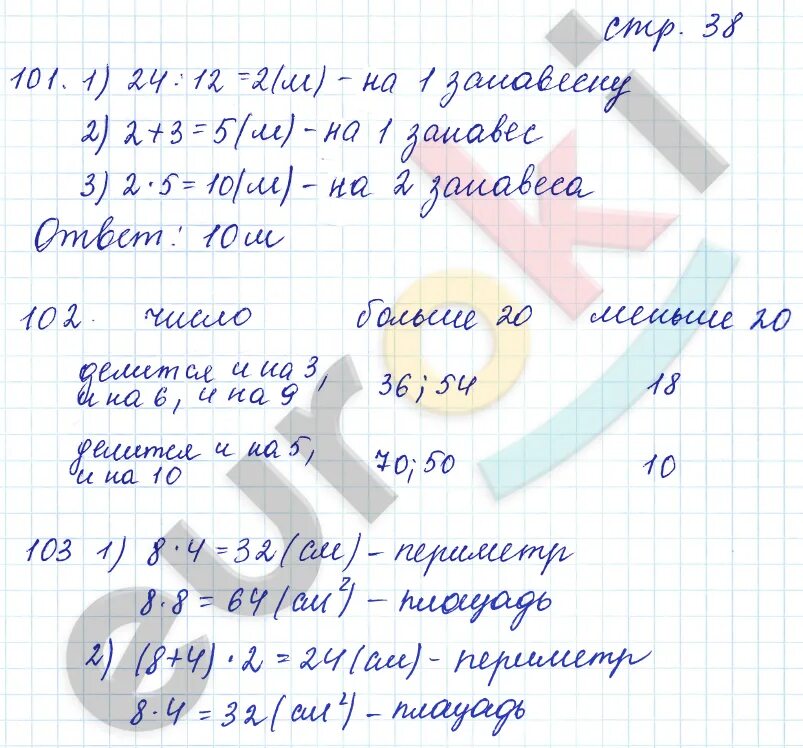 стр. 38
101. 1) 24 : 12 = 2(м) - на 1 занавеску
2) 2 + 3 = 5(м) - на 1 занавес
3) 2 · 5 = 10(м) - на 2 занавеса
Ответ: 10м
102. число больше 20 меньше 20
делится и на 3,
и на 6, и на 9 36; 54 18
делится и на 5,
и на 10 70; 50 10
103 1) 8 · 4 = 32 (см) - периметр
8 · 8 = 64 (см²) - площадь
2) (8+4) · 2 = 24 (см) - периметр
8 · 4 = 32 (см²) - площадь
euroki